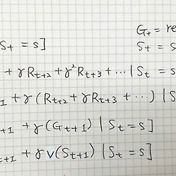 G_t = re
S_t = s]
S_t = s
+ γR_{t+2} + γ²R_{t+3} + ... | S_t = s
+1 + γ(R_{t+2} + γR_{t+3} + ...) | S
t+1 + γ(G_{t+1}) | S_t = s]
t+1 + γv(S_{t+1}) | S_t = s]